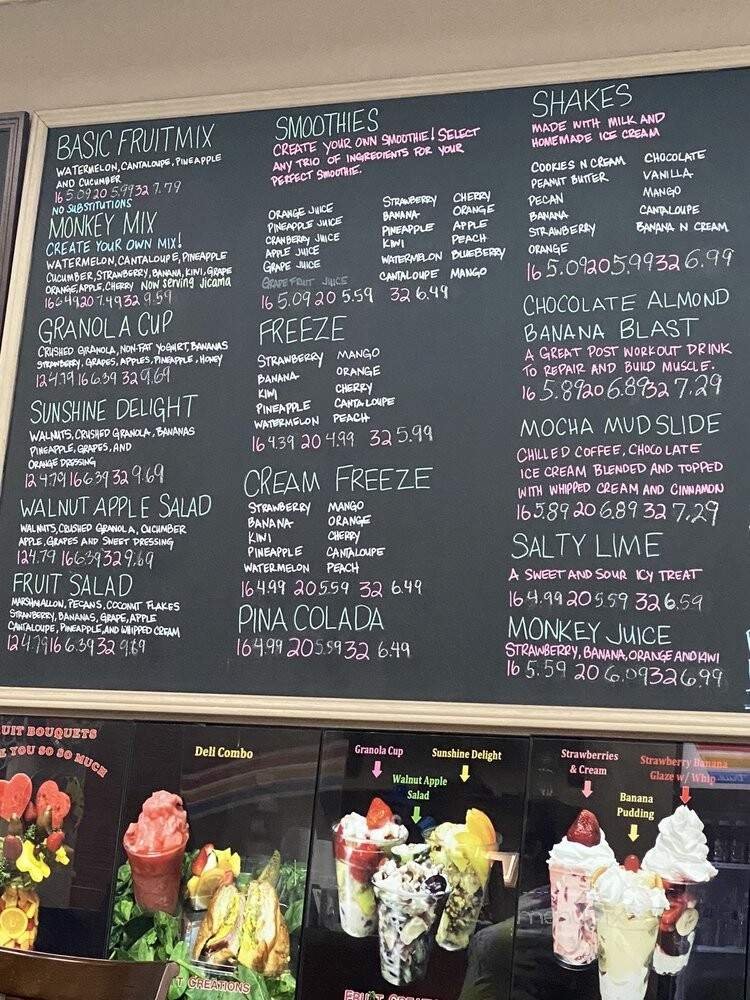 BASIC FRUITMIX
WATERMELON, CANTALOUPE, PINEAPPLE
AND CUCUMBER
16 5.09 20 5.99 32 7.79
NO SUBSTITUTIONS
MONKEY MIX
CREATE YOUR OWN MIX!
WATERMELON, CANTALOUPE, PINEAPPLE
CUCUMBER, STRAWBERRY, BANANA, KIWI, GRAPE
ORANGE, APPLE, CHERRY NOW SERVING JICAMA
16 6.49 20 7.49 32 9.59
GRANOLA CUP
CRUSHED GRANOLA, NON-FAT YOGURT, BANANAS
STRAWBERRY, GRAPES, APPLES, PINEAPPLE, HONEY
12 4.79 16 6.39 32 9.69
SUNSHINE DELIGHT
WALNUTS, CRUSHED GRANOLA, BANANAS
PINEAPPLE, GRAPES, AND
ORANGE DRESSING
12 4.79 16 6.39 32 9.69
WALNUT APPLE SALAD
WALNUTS, CRUSHED GRANOLA, CUCUMBER
APPLE, GRAPES AND SWEET DRESSING
12 4.79 16 6.39 32 9.69
FRUIT SALAD
MARSHMALLOW, PECANS, COCONUT FLAKES
STRAWBERRY, BANANAS, GRAPE, APPLE
CANTALOUPE, PINEAPPLE, AND WHIPPED CREAM
12 4.79 16 6.39 32 9.69
SMOOTHIES
CREATE YOUR OWN SMOOTHIE! SELECT
ANY TRIO OF INGREDIENTS FOR YOUR
PERFECT SMOOTHIE.
ORANGE JUICE STRAWBERRY CHERRY
PINEAPPLE JUICE BANANA ORANGE
CRANBERRY JUICE PINEAPPLE APPLE
APPLE JUICE KIWI PEACH
GRAPE JUICE WATERMELON BLUEBERRY
GRAPEFRUIT JUICE CANTALOUPE MANGO
16 5.09 20 5.59 32 6.49
FREEZE
STRAWBERRY MANGO
BANANA ORANGE
KIWI CHERRY
PINEAPPLE CANTALOUPE
WATERMELON PEACH
16 4.39 20 4.99 32 5.99
CREAM FREEZE
STRAWBERRY MANGO
BANANA ORANGE
KIWI CHERRY
PINEAPPLE CANTALOUPE
WATERMELON PEACH
16 4.99 20 5.59 32 6.49
PINA COLADA
16 4.99 20 5.59 32 6.49
SHAKES
MADE WITH MILK AND
HOMEMADE ICE CREAM
COOKIES N CREAM CHOCOLATE
PEANUT BUTTER VANILLA
PECAN MANGO
BANANA CANTALOUPE
STRAWBERRY BANANA N CREAM
ORANGE
16 5.09 20 5.99 32 6.99
CHOCOLATE ALMOND
BANANA BLAST
A GREAT POST WORKOUT DRINK
TO REPAIR AND BUILD MUSCLE.
16 5.89 20 6.89 32 7.29
MOCHA MUDSLIDE
CHILLED COFFEE, CHOCOLATE
ICE CREAM BLENDED AND TOPPED
WITH WHIPPED CREAM AND CINNAMON
16 5.89 20 6.89 32 7.29
SALTY LIME
A SWEET AND SOUR ICY TREAT
16 4.99 20 5.59 32 6.59
MONKEY JUICE
STRAWBERRY, BANANA, ORANGE AND KIWI
16 5.59 20 6.09 32 6.99
UIT BOUQUETS
E YOU SO MUCH
Deli Combo
T CREATIONS
Granola Cup
Sunshine Delight
Walnut Apple
Salad
Strawberries
& Cream
Strawberry Banana
Glaze w/ Whip
Banana
Pudding